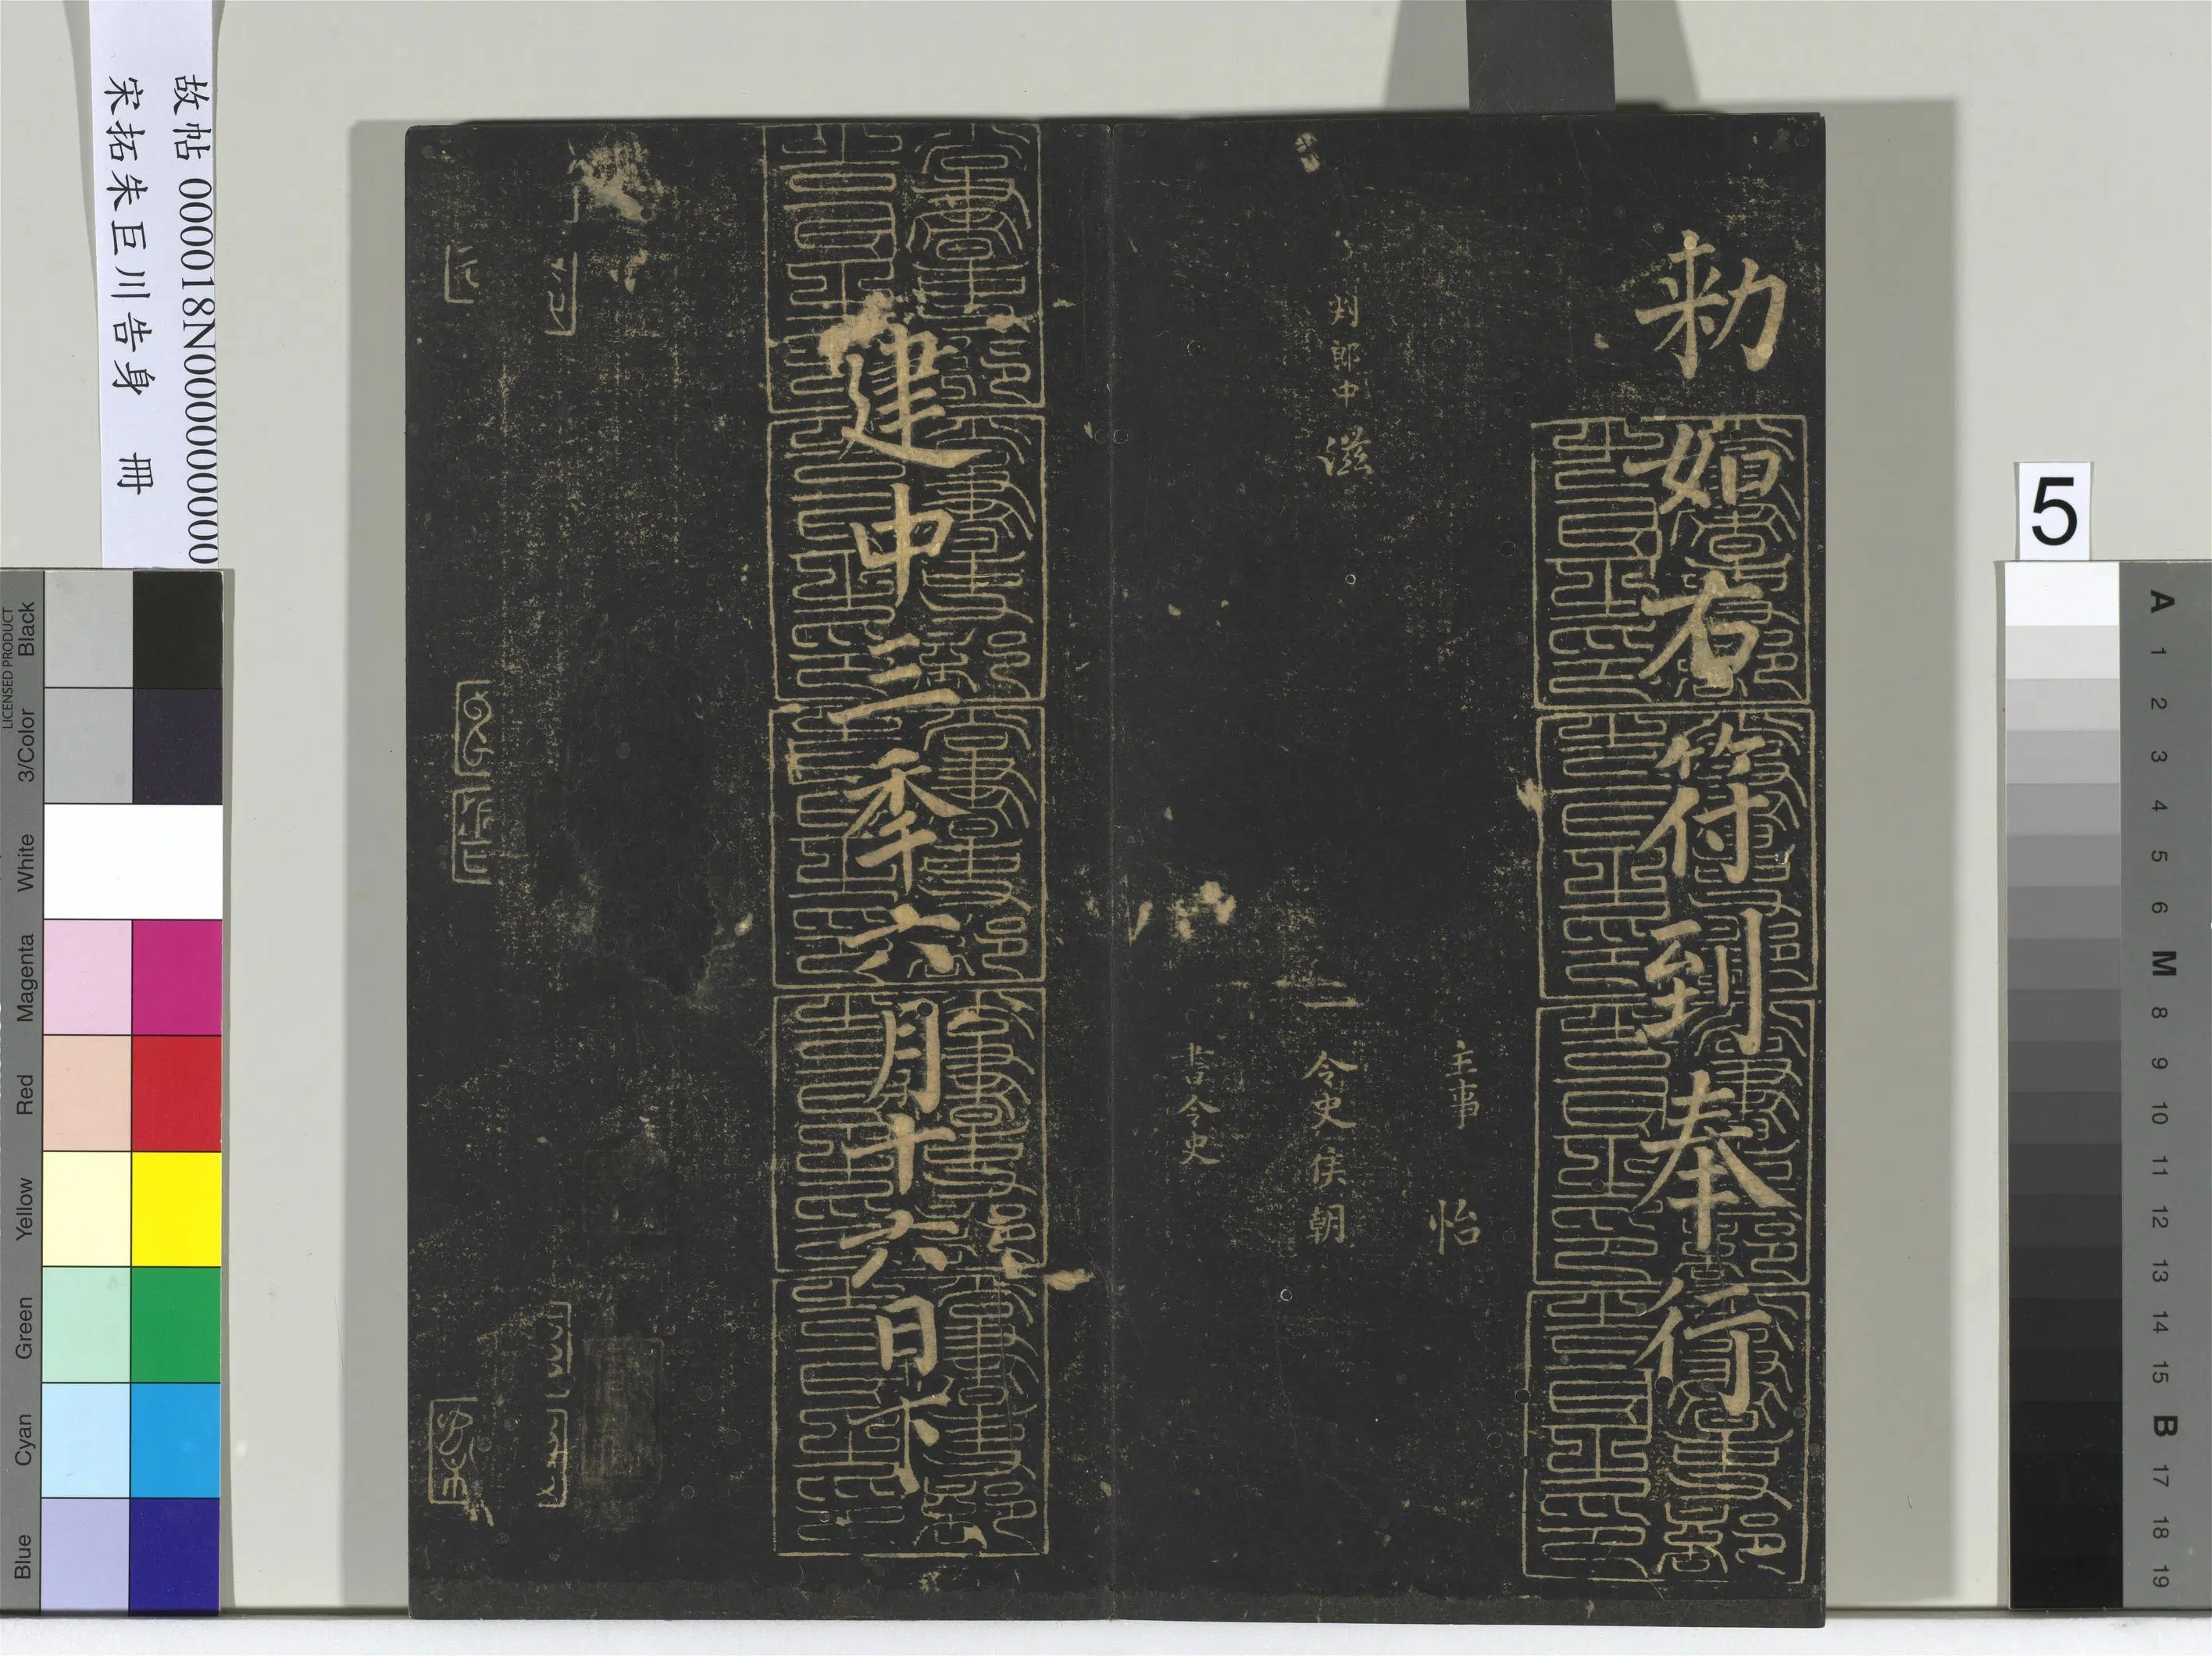 勑
如右符到奉行
主事 怡
判郎中 滋
令史侯朝
書令史
建中三秊六月十六日
故帖 000018N000000000
宋拓朱巨川告身 冊
5
LICENSED PRODUCT
Black
3/Color
White
Magenta
Red
Yellow
Green
Cyan
Blue
A
1
2
3
4
5
6
M
8
9
10
11
12
13
14
15
B
17
18
19